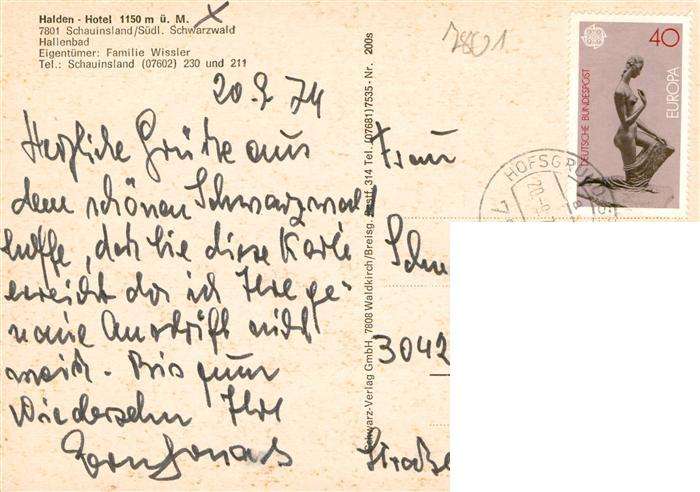 Halden - Hotel 1150 m ü. M.
7801 Schauinsland/Südl. Schwarzwald
Hallenbad
Eigentümer: Familie Wissler
Tel.: Schauinsland (07602) 230 und 211
20.9.74
Herzliche Grüße aus
dem schönen Schwarzwal
hoffe, daß Sie diese Karte
erreicht da ich Ihre ge-
naue Anschrift nicht
weiß. Bis zum
Wiedersehn Ihre
Schwarz-Verlag GmbH, 7808 Waldkirch/Breisg. Postf. 314 Tel. (07681) 7535 - Nr. 200s
7801
40
DEUTSCHE BUNDESPOST
EUROPA
HOFSGRUND
Frau
3042
Straße